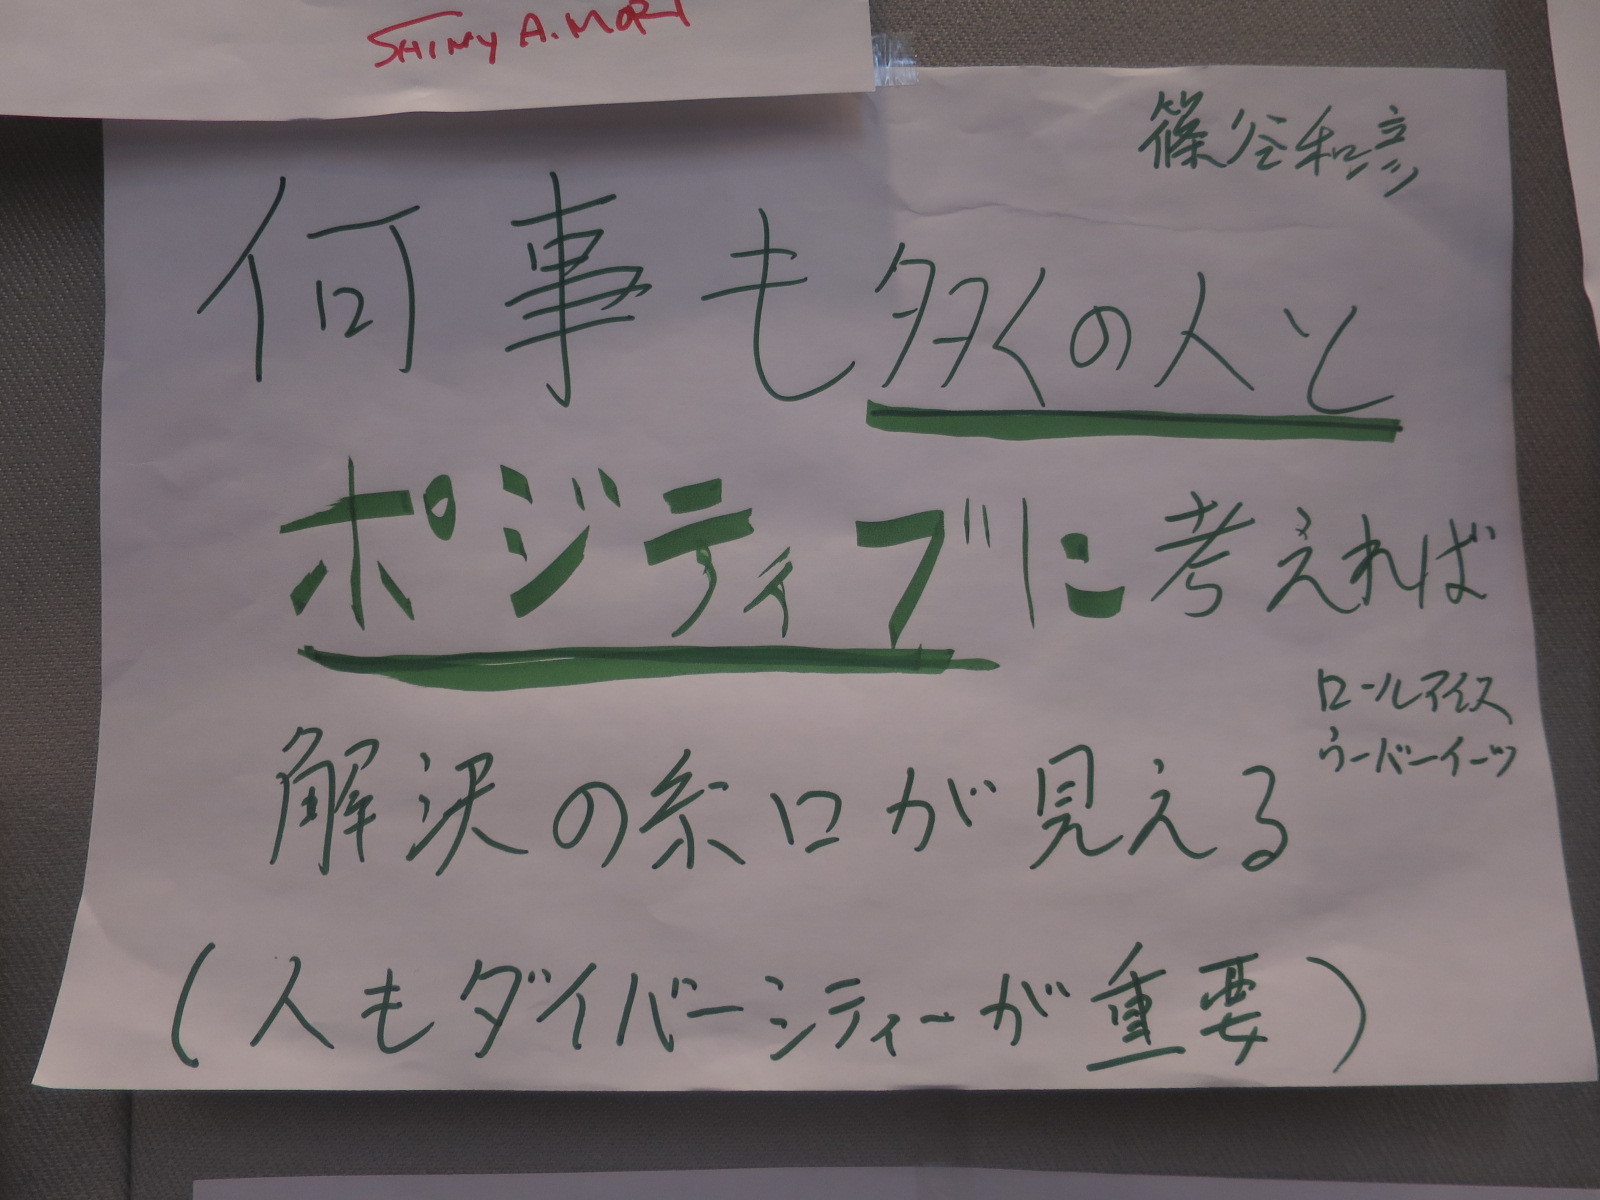 SHINY A. MORI
篠谷和彦
何事も多くの人と
ポジティブに考えれば
ロールアイス
ウーバーイーツ
解決の糸口が見える
(人もダイバーシティーが重要)